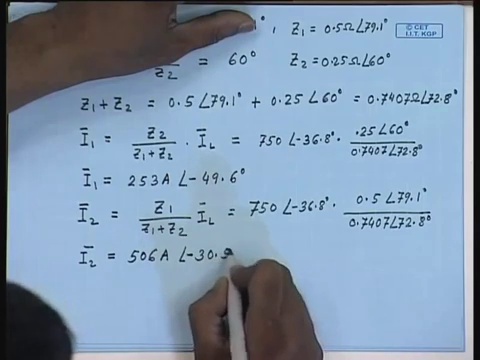 1°, Z₁ = 0.5Ω∠79.1°
© CET
I.I.T. KGP
Z₂ = 60° Z₂ = 0.25Ω∠60°
Z₁+Z₂ = 0.5∠79.1° + 0.25∠60° = 0.7407Ω∠72.8°
Ī₁ = Z₂/(Z₁+Z₂) · Ī_L = 750∠-36.8° · .25∠60°/0.7407∠72.8°
Ī₁ = 253A ∠-49.6°
Ī₂ = Z₁/(Z₁+Z₂) Ī_L = 750∠-36.8° · 0.5∠79.1°/0.7407∠72.8°
Ī₂ = 506A ∠-30.